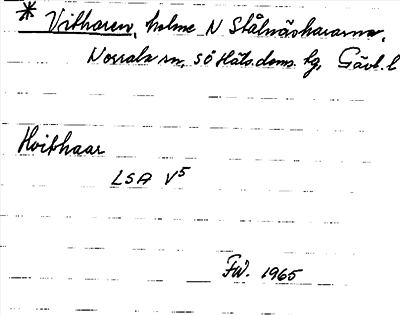 * Vitharen, holme N Stålnäshararna,
Norrala sn, SÖ Häls.doms. tg, Gävl. l
Hvithaar
LSA V5
FW. 1965